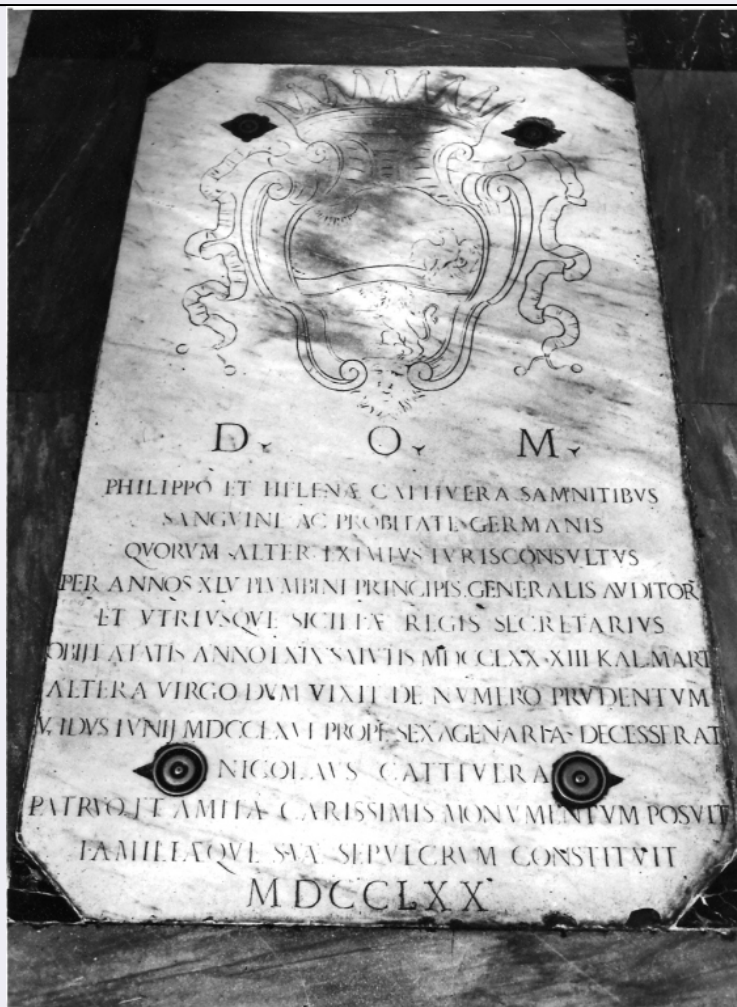 D. O. M.
PHILIPPO ET HELENÆ CATTIVERA SAMNITIBVS
SANGVINE AC PROBITATE GERMANIS
QVORVM ALTER EXIMIVS IVRISCONSVLTVS
PER ANNOS XLV PLVMBINI PRINCIPIS GENERALIS AVDITOR
ET VTRIVSQVE SICILIÆ REGIS SECRETARIVS
OBIIT ÆTATIS ANNO LXIX SALVTIS MDCCLXX XIII KAL MART
ALTERA VIRGO DVM VIXIT DE NVMERO PRVDENTVM
V. IDVS IVNIJ MDCCLXVI PROPE SEXAGENARIA DECESSERAT
NICOLAVS CATTIVERA
PATRVO ET AMITÆ CARISSIMIS MONVMENTVM POSVIT
FAMILIÆQVE SVÆ SEPVLCRVM CONSTITVIT
MDCCLXX